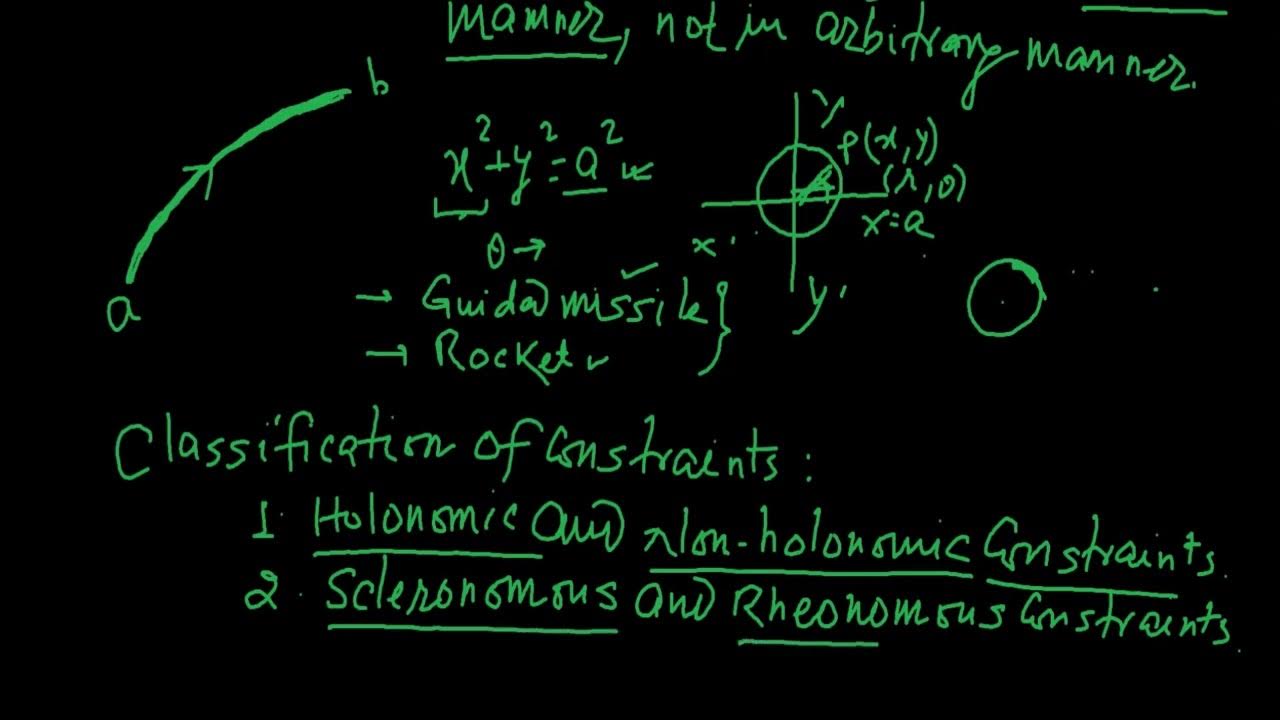 manner, not in arbitrary manner.
b
a
x²+y²=a²
θ→
→ Guided missile
→ Rocket
y
P(x,y)
(r,θ)
x=a
x'
y'
Classification of Constraints:
1. Holonomic and Non-holonomic Constraints.
2. Scleronomous and Rheonomous Constraints.